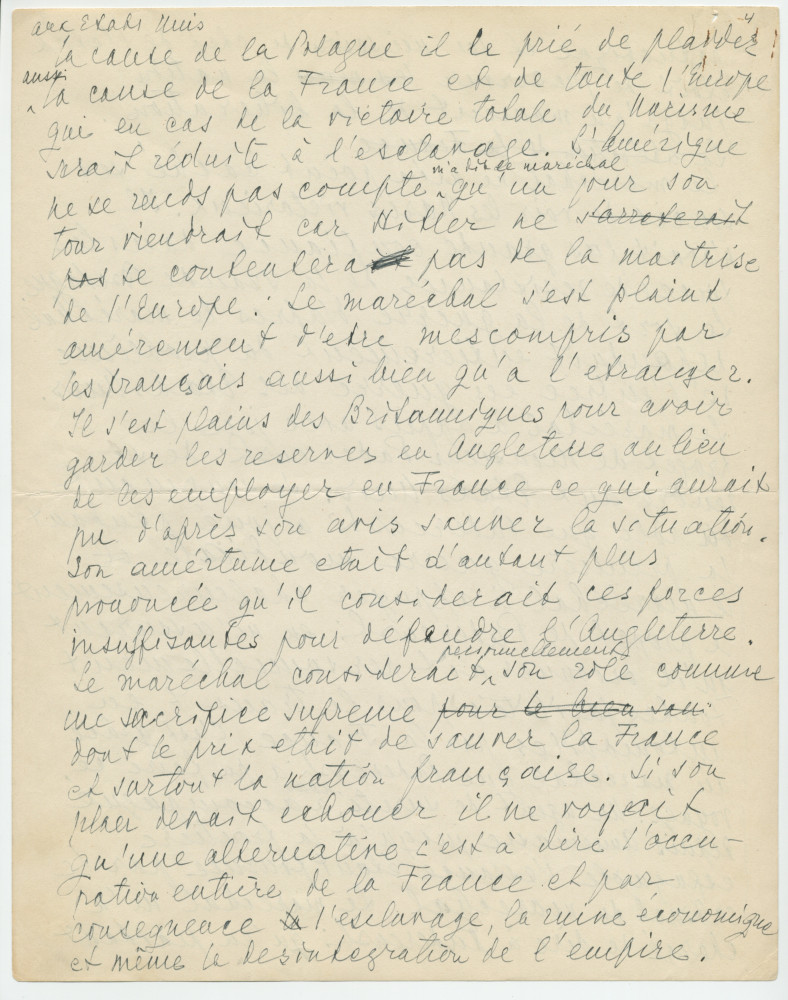 4
aux Etats Unis
la cause de la Pologne il le prié de plaider
aussi
la cause de la France et de toute l'Europe
qui en cas de la victoire totale du Narisme
serait réduite à l'esclavage. L'Amérique
m'a dit le maréchal
ne se rends pas compte qu'un jour son
tour viendrait car Hitler ne s'arreterait
pas se contentera pas de la maitrise
de l'Europe. Le maréchal s'est plaint
amérement d'etre mescompris par
les français aussi bien qu'a l'etranger.
Il s'est plains des Britanniques pour avoir
garder les reserves en Angleterre au lieu
de les employer en France ce qui aurait
pu d'après son avis sauver la situation.
Son amértume etait d'autant plus
prononcée qu'il considerait ces forces
insuffisantes pour défendre l'Angleterre.
personnellement
Le maréchal considerait son role comme
un sacrifice supreme pour le bien san
dont le prix etait de sauver la France
et surtout la nation française. Si son
plan devait echouer il ne voyait
qu'une alternative c'est à dire l'occu-
pation entière de la France et par
consequence l'esclavage, la ruine économique
et même la desintegration de l'empire.